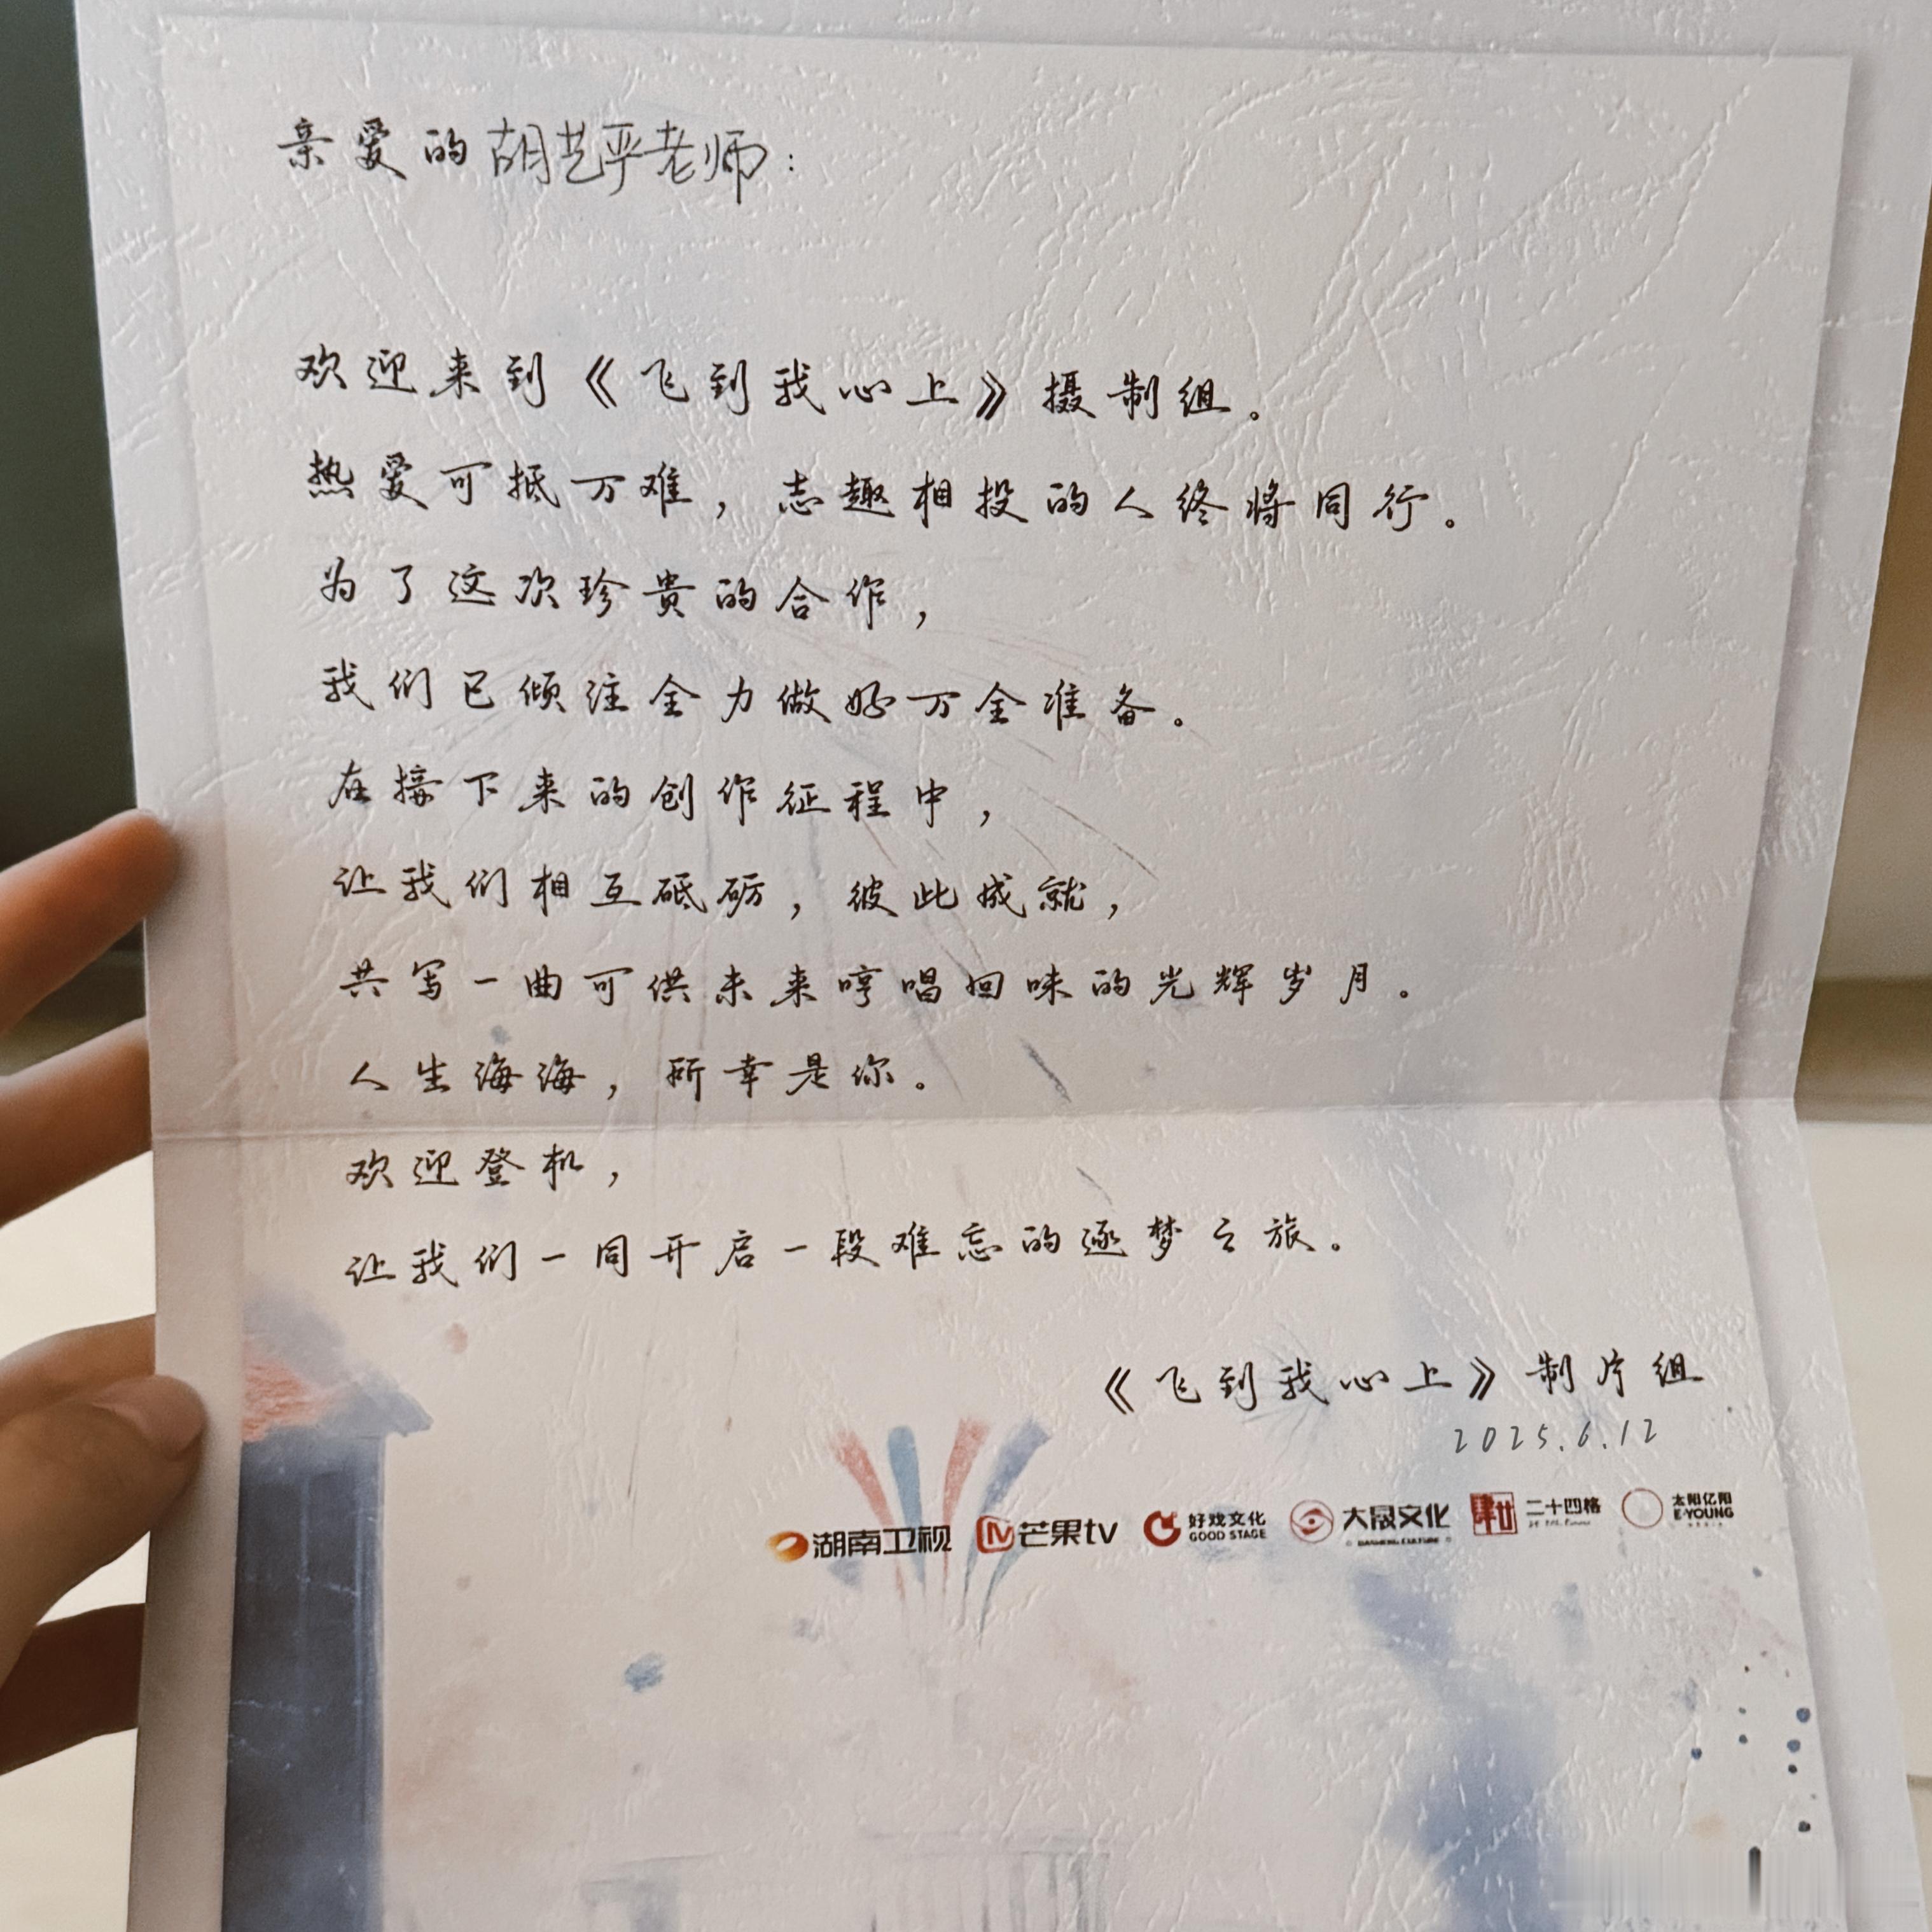 亲爱的胡艺严老师：
欢迎来到《飞到我心上》摄制组。
热爱可抵万难，志趣相投的人终将同行。
为了这次珍贵的合作，
我们已倾注全力做好万全准备。
在接下来的创作征程中，
让我们相互砥砺，彼此成就，
共写一曲可供未来哼唱回味的光辉岁月。
人生海海，所幸是你。
欢迎登机，
让我们一同开启一段难忘的逐梦之旅。
《飞到我心上》制片组
2025.6.12
湖南卫视 芒果tv 好戏文化 GOOD STAGE 大晟文化 DASHENG CULTURE 肆廿 二十四格 太阳亿阳 E·YOUNG